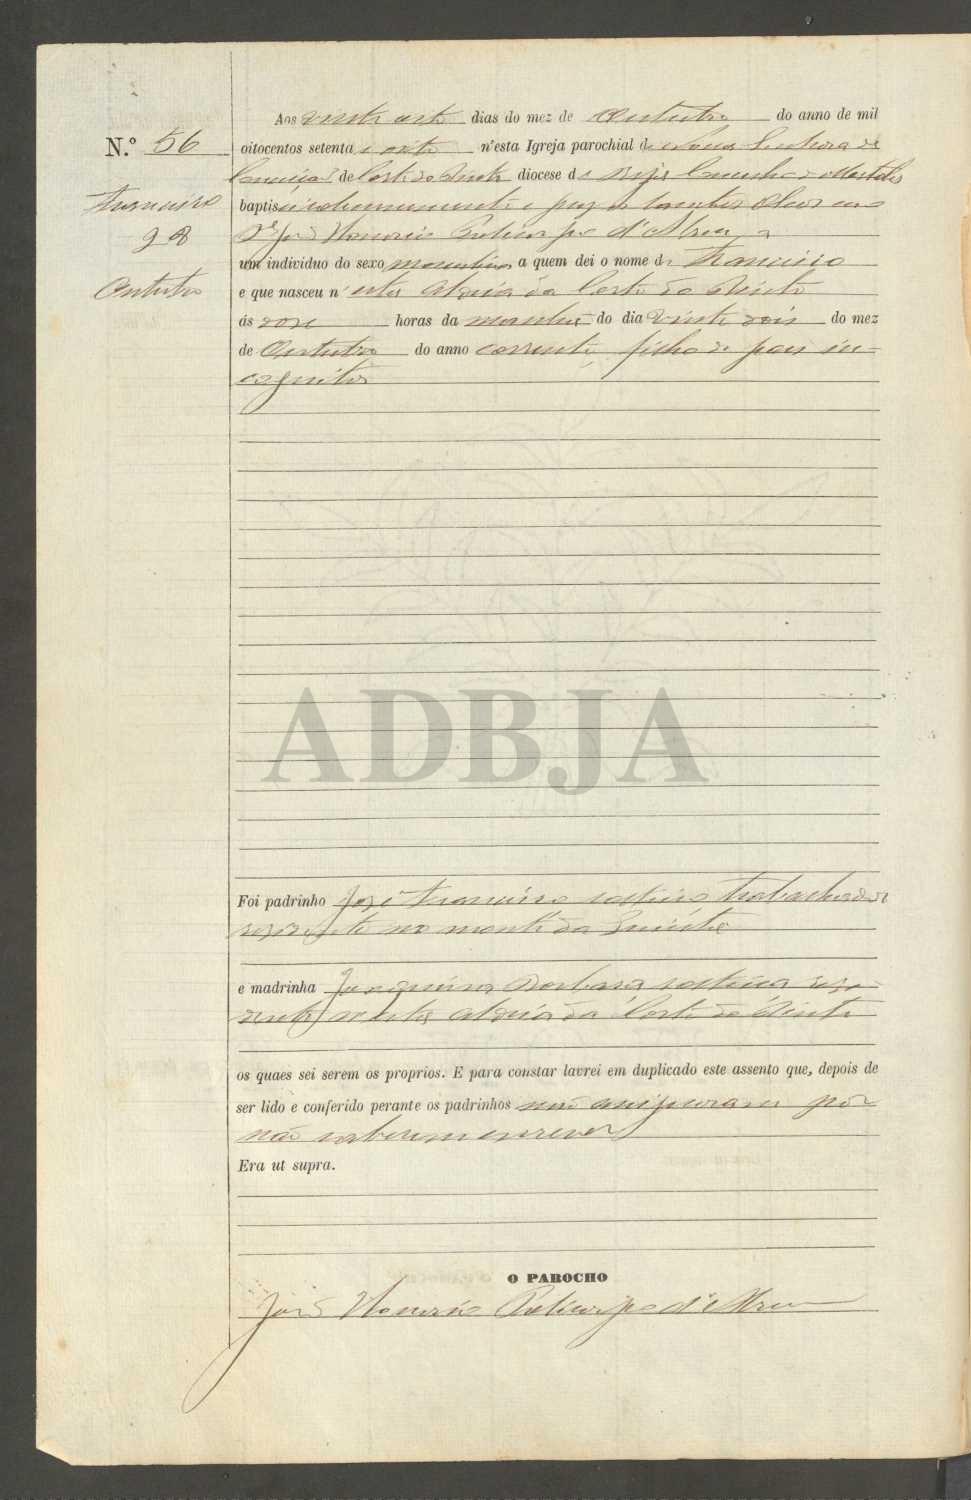 N.º 56
Francisco
28
Outubro
Aos vinte oito dias do mez de Outubro do anno de mil
oitocentos setenta e oito n'esta Igreja parochial de Nossa Senhora da
Conceição de Corte do Pinto diocese de Beja Concelho de Mertola
baptisei solemnemente e puz os Santos Oleos eu o
P.e José Honorio Policarpo d'Abreu, a
um individuo do sexo masculino a quem dei o nome de Francisco
e que nasceu n'esta Aldeia da Corte do Pinto
ás doze horas da manhã do dia vinte dois do mez
de Outubro do anno corrente, filho de paes in-
cognitos
ADBJA
Foi padrinho José Francisco solteiro trabalhador
residente no monte da
e madrinha Joaquina Barbara solteira resi-
dente n'esta Aldeia da Corte do Pinto
os quaes sei serem os proprios. E para constar lavrei em duplicado este assento que, depois de
ser lido e conferido perante os padrinhos não assignaram por
não saberem escrever
Era ut supra.
O PAROCHO
José Honorio Policarpo d'Abreu